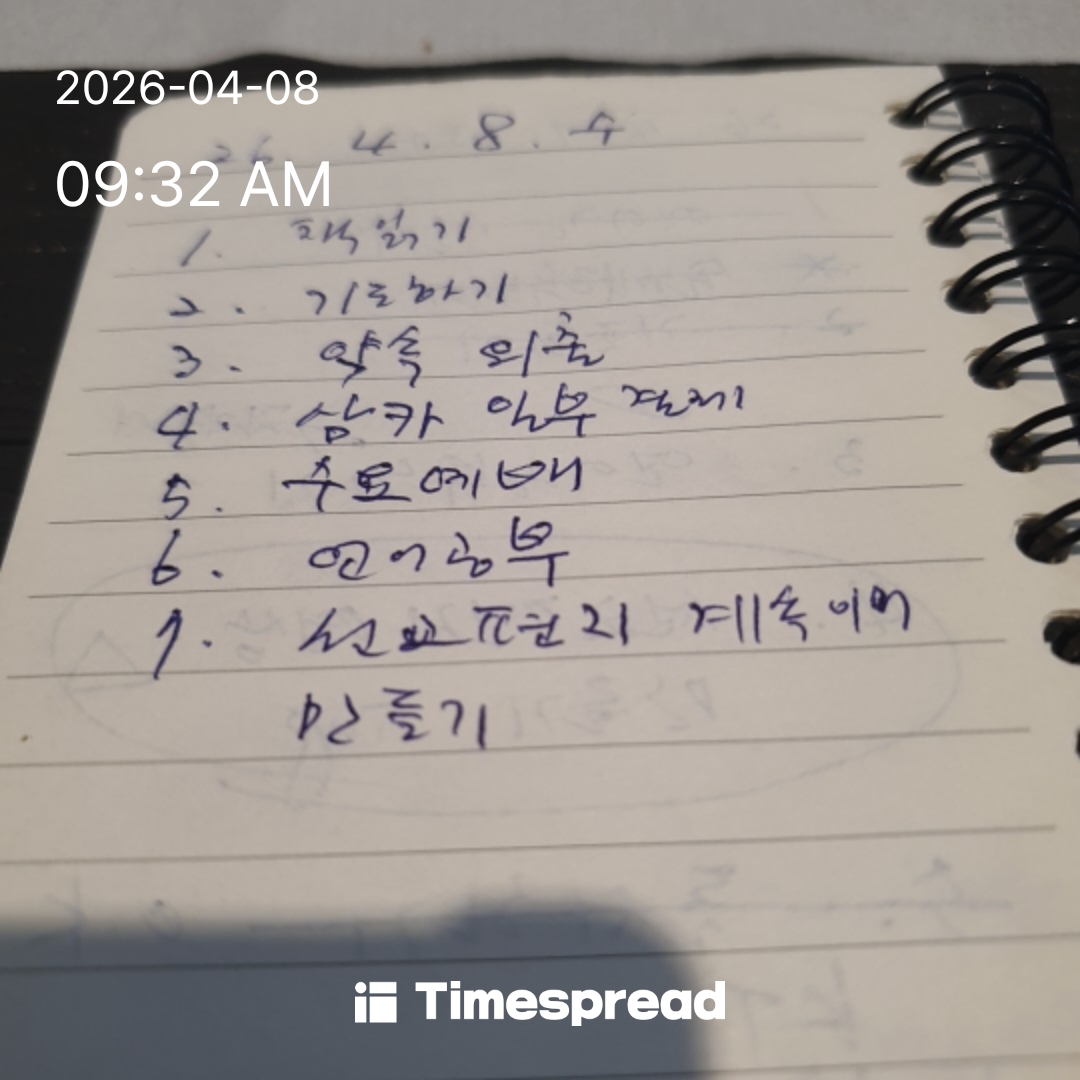 2026-04-08
26. 4. 8. 수
09:32 AM
1. 책읽기
2. 기도하기
3. 약속 외출
4. 삼카 일부 결제
5. 수요예배
6. 언어공부
7. 선교편지 계속이어
만들기
Timespread